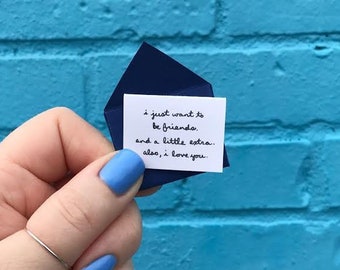 i just want to
be friends.
and a little extra.
also, i love you.